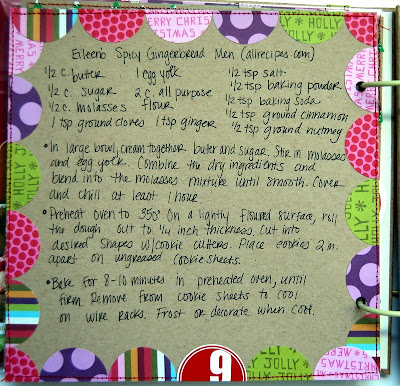 Eileen's Spicy Gingerbread Men (allrecipes.com)
1/2 c. butter 1 egg yolk 1/2 tsp salt
1/2 c. sugar 2 c. all purpose 1/2 tsp baking powder
1/2 c. molasses flour 1/2 tsp baking soda
1 tsp ground cloves 1 tsp ginger 1/2 tsp ground cinnamon
1/2 tsp ground nutmeg
• In large bowl, cream together butter and sugar. Stir in molasses
and egg yolk. Combine the dry ingredients and
blend into the molasses mixture until smooth. Cover
and chill at least 1 hour
• Preheat oven to 350° On a lightly floured surface, roll
the dough out to 1/4 inch thickness. Cut into
desired shapes w/cookie cutters. Place cookies 2 in.
apart on ungreased cookie sheets.
• Bake for 8-10 minutes in preheated oven, until
firm. Remove from cookie sheets to cool
on wire racks. Frost or decorate when cool.
9
MERRY CHRIS
HOLLY
JOLLY